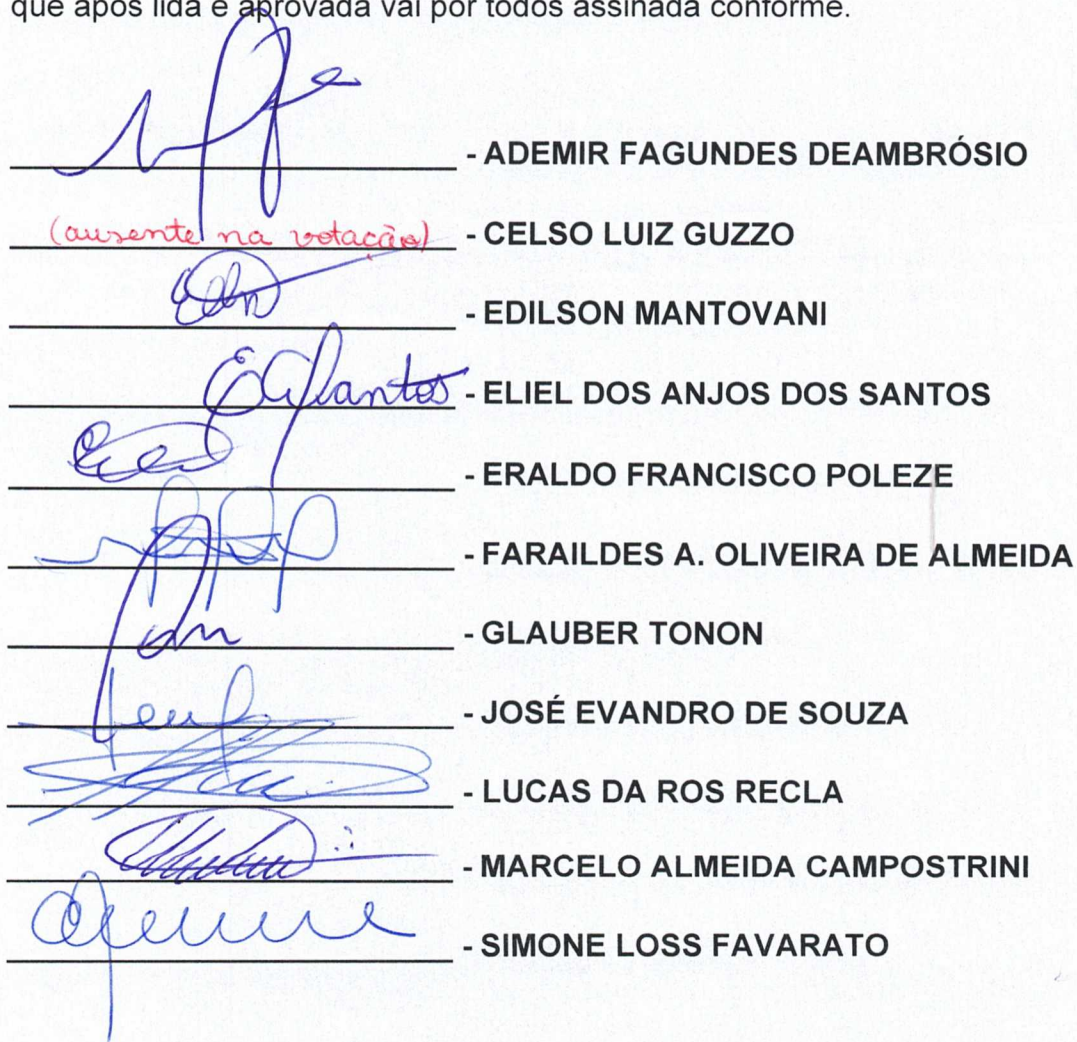 que após lida e aprovada vai por todos assinada conforme.
- ADEMIR FAGUNDES DEAMBRÓSIO
(ausente na votação) - CELSO LUIZ GUZZO
- EDILSON MANTOVANI
- ELIEL DOS ANJOS DOS SANTOS
- ERALDO FRANCISCO POLEZE
- FARAILDES A. OLIVEIRA DE ALMEIDA
- GLAUBER TONON
- JOSÉ EVANDRO DE SOUZA
- LUCAS DA ROS RECLA
- MARCELO ALMEIDA CAMPOSTRINI
- SIMONE LOSS FAVARATO